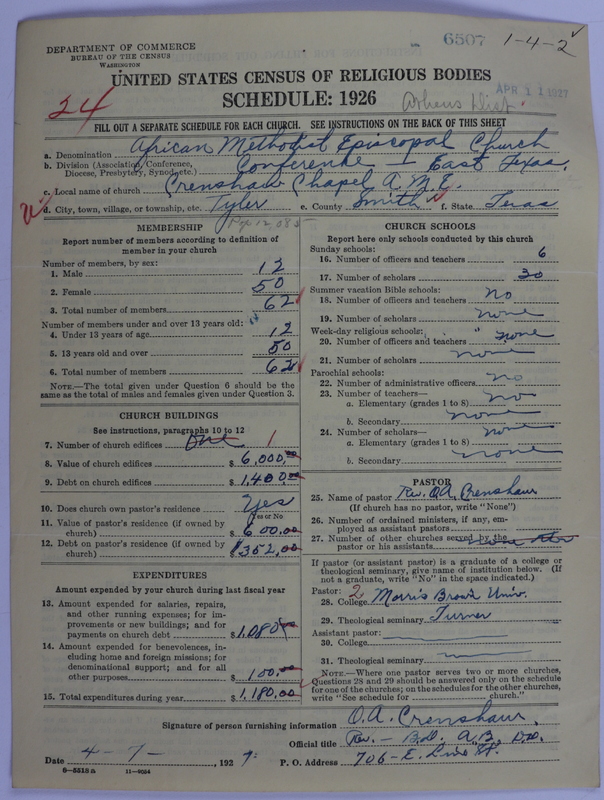 6507 1-4-2
DEPARTMENT OF COMMERCE
BUREAU OF THE CENSUS
WASHINGTON
APR 11 1927
UNITED STATES CENSUS OF RELIGIOUS BODIES
24
SCHEDULE: 1926 Athens Dist.
FILL OUT A SEPARATE SCHEDULE FOR EACH CHURCH. SEE INSTRUCTIONS ON THE BACK OF THIS SHEET
a. Denomination African Methodist Episcopal Church
b. Division (Association, Conference, Diocese, Presbytery, Synod, etc.) Conference - East Texas.
c. Local name of church Crenshaw Chapel A.M.E.
d. City, town, village, or township, etc. Tyler e. County Smith f. State Texas
MEMBERSHIP
Report number of members according to definition of
member in your church
Number of members, by sex:
1. Male 12
2. Female 50
3. Total number of members 62
Number of members under and over 13 years old:
4. Under 13 years of age 12
5. 13 years old and over 50
6. Total number of members 62
NOTE.—The total given under Question 6 should be
same as the total of males and females given under Question 3.
CHURCH BUILDINGS
See instructions, paragraphs 10 to 12
7. Number of church edifices One 1
8. Value of church edifices $ 6,000.00
9. Debt on church edifices $ 1,400.00
10. Does church own pastor's residence Yes
Yes or No
11. Value of pastor's residence (if owned by
church) $ 600.00
12. Debt on pastor's residence (if owned by
church) $ $352.00
EXPENDITURES
Amount expended by church during last fiscal year
13. Amount expended for salaries, repairs,
and other running expenses; for im-
provements or new buildings; and for
payments on church debt $ 1,080
14. Amount expended for benevolences, in-
cluding home and foreign missions; for
denominational support; and for all
other purposes $ 100.00
15. Total expenditures during year $ 1,180.00
CHURCH SCHOOLS
Report here only schools conducted by this church
Sunday schools:
16. Number of officers and teachers 6
17. Number of scholars 30
Summer vacation Bible schools:
18. Number of officers and teachers no
19. Number of scholars none
Week-day religious schools:
20. Number of officers and teachers " none
21. Number of scholars none
Parochial schools:
22. Number of administrative officers no
23. Number of teachers—
a. Elementary (grades 1 to 8) no
b. Secondary none
24. Number of scholars—
a. Elementary (grades 1 to 8) none
b. Secondary none
PASTOR
25. Name of pastor Rev. O.A. Crenshaw
(If church has no pastor, write "None")
26. Number of ordained ministers, if any, em-
ployed as assistant pastors
27. Number of other churches served by the
pastor or his assistants
If pastor (or assistant pastor) is a graduate of a college or
theological seminary, give name of institution below. (If
not a graduate, write "No" in the space indicated.)
Pastor: 2
28. College Morris Brown Univ.
29. Theological seminary Turner
Assistant pastor:
30. College
31. Theological seminary
NOTE.—Where one pastor serves two or more churches,
Questions 28 and 29 should be answered only on the schedule
for one of the churches; on the schedules for the other churches,
write "See schedule for church."
Signature of person furnishing information O.A. Crenshaw.
Official title Rev. - B.D. A.B. D.D.
Date 4-7-, 1927 P. O. Address 706-E. Line St.
6-5518 a 11-9034